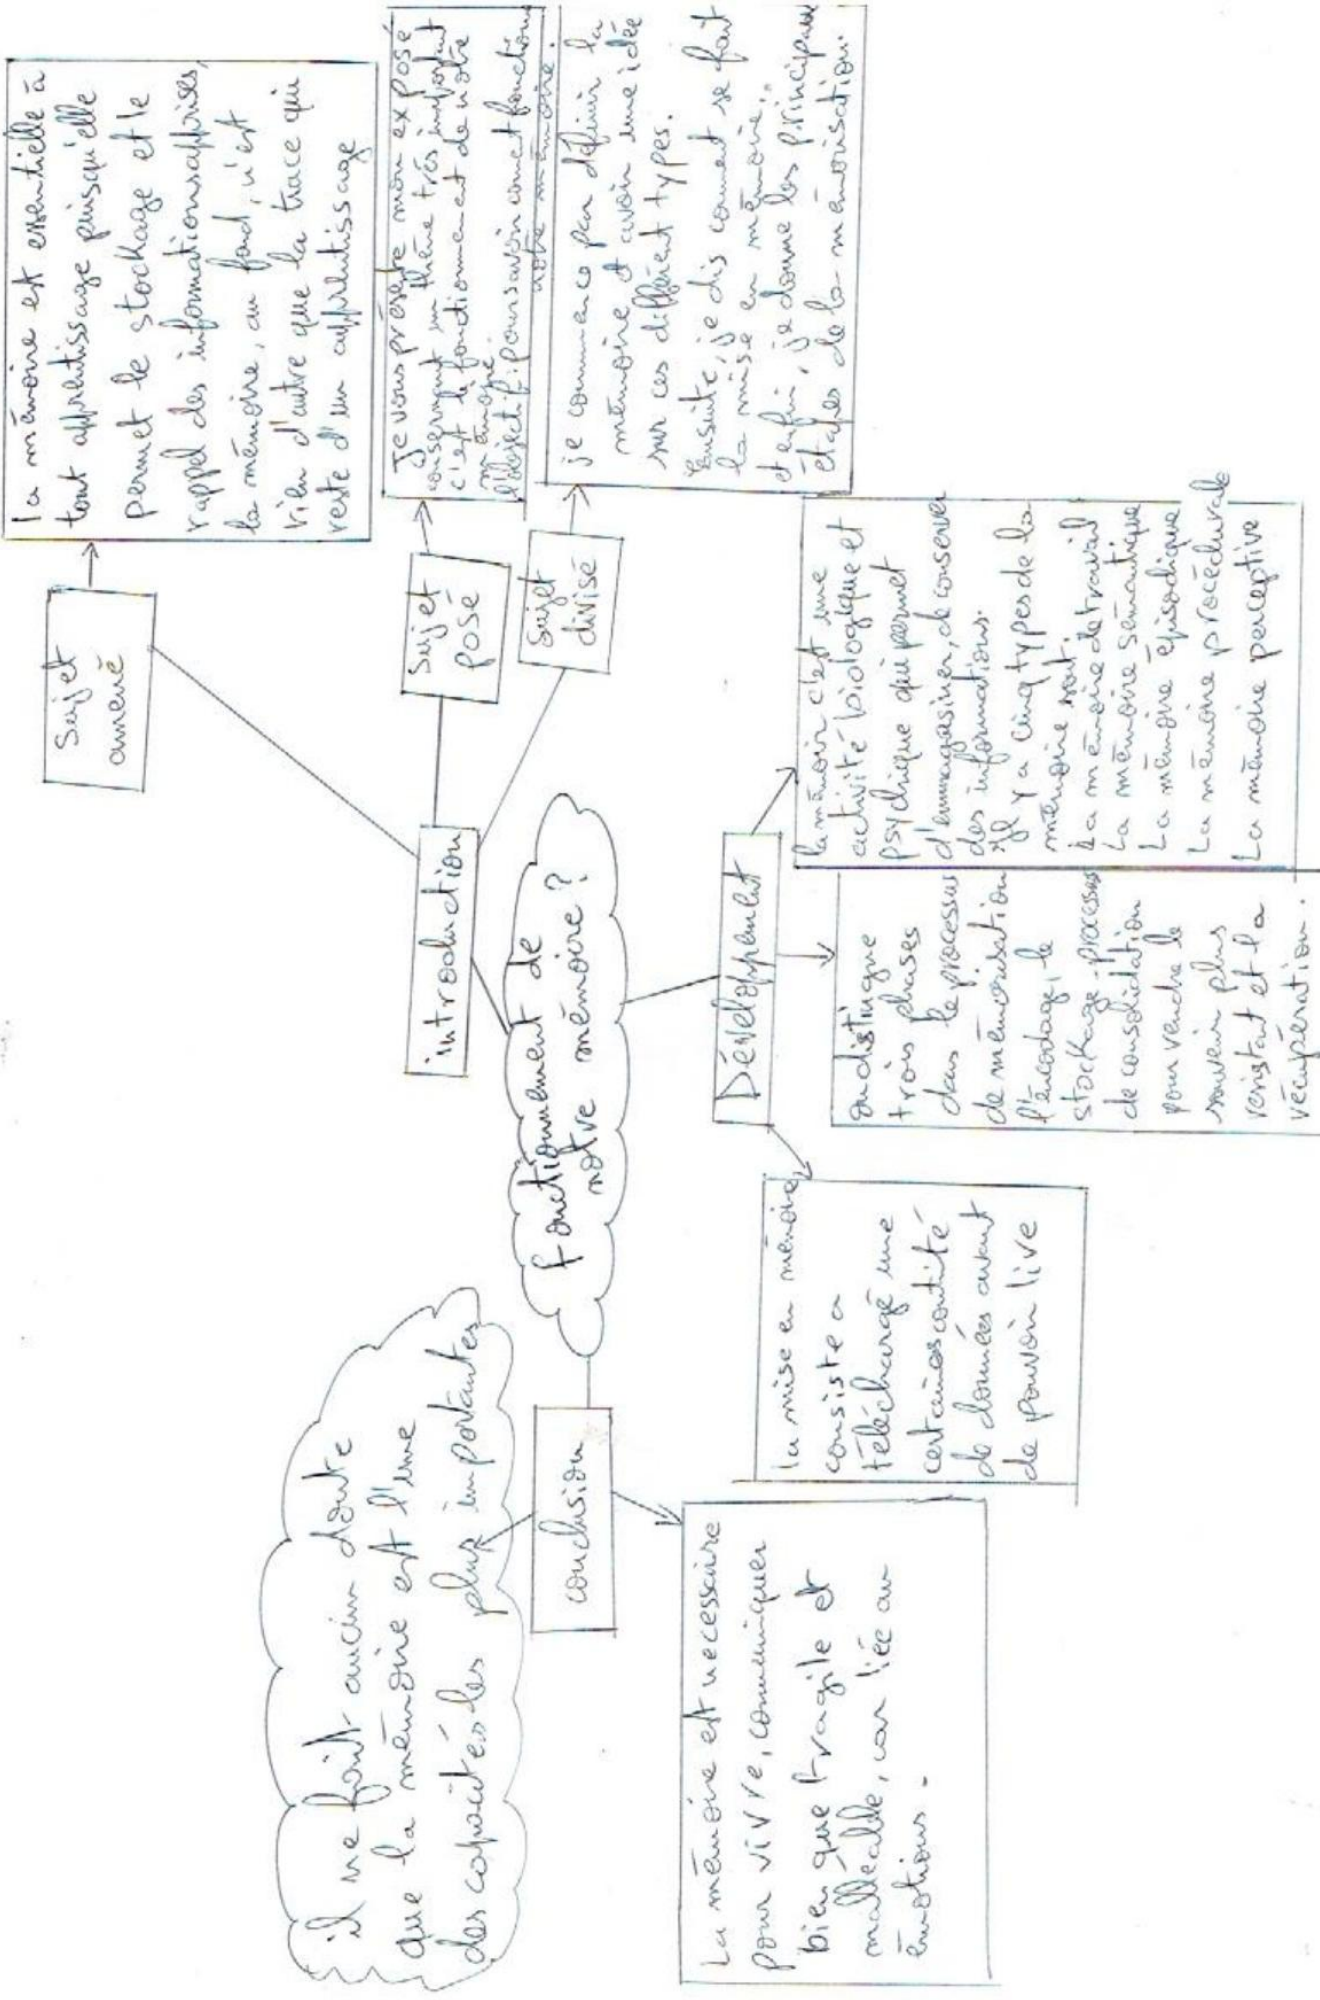 fonctionnement de
notre mémoire ?
introduction
Sujet
amené
la mémoire est essentielle à
tout apprentissage puisqu'elle
permet le stockage et le
rappel des informations apprises,
la mémoire, au fond, n'est
rien d'autre que la trace qui
reste d'un apprentissage
Sujet
posé
Je vous présente mon exposé
consernant un thème très important
c'est le fonctionnement de notre
mémoire.
l'objectif: pour savoir comment fonctionne
notre mémoire.
Sujet
divisé
je commence par définir la
mémoire et avoir une idée
sur ces différent types.
Ensuite, je dis coment se fait
la mise en mémoire..
et enfin, je donne les principaux
étapes de la mémorisation.
Développement
la mémoir c'est une
activité biologique et
psychique qui permet
d'emmagasiner, de conserver
des informations.
Il y a cinq types de la
mémoire sont.
La mémoire de travail
La mémoire sémantique
La mémoire épisodique
La mémoire procédurale
La mémoire perceptive
on distingue
trois phases
dans le processus
de mémorisation
l'éncodage, le
stockage-processus
de consolidation
pour rendre le
souvenir plus
résistant et la
récupération.
la mise en mémoire
consiste a
téléchargé une
certaines contité
de données avant
de pouvoir live
conclusion
il ne fait aucun doute
que la mémoire est l'une
des capacités les plus importantes
La mémoire est necessaire
pour vivre, communiquer
bien que fragile et
malléable, car liée au
émotions.